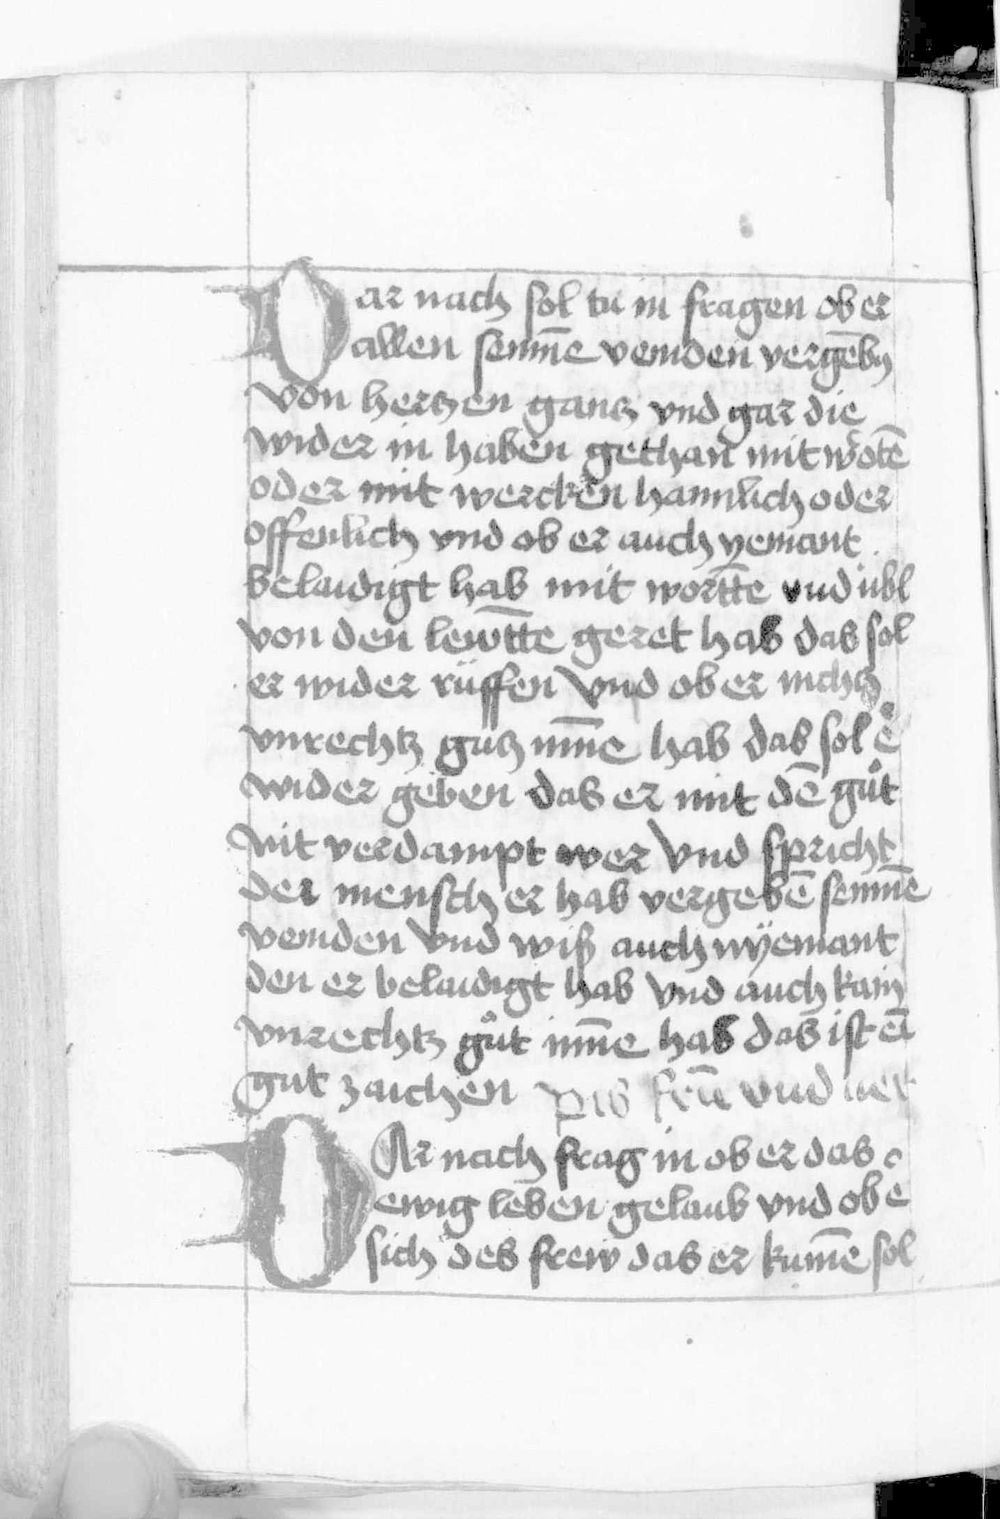 Dar nach sol tu in fragen ob er
allen seinnē veinden vergebn̄
von hertzen gantz vnd gar die
wider in haben gethan mit wortē
oder mit wercken hainnlich oder
offenlich vnd ob er auch yemant
belaidigt hab mit wortt̄e vnd übl
von den lewtt̄e geret hab das sol
er wider rüffen Vnd ob er nichtz
vnrechtz gutz inn̄e hab das sol er
wider geben das er mit dē gůt
nit verdampt wer Vnd spricht
der mensch er hab vergebē seinnē
veinden Vnd wiß auch nyemant
den er belaidigt hab Vnd auch kain
vnrechtz gůt inn̄e hab das ist eī
gut zaichen vnd
DAr nach frag in ob er das
ewig leben gelaub vnd ob e
sich des frew das er kum̄e sol